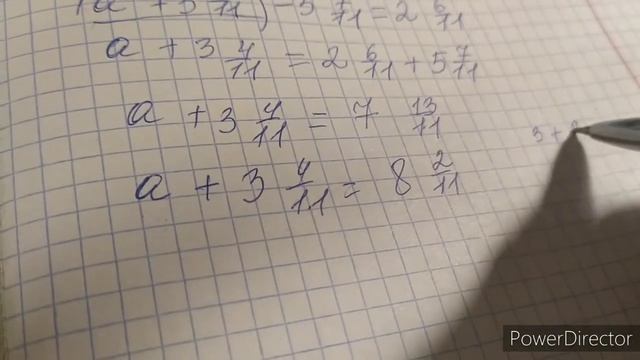 (a + 3 4/11) - 5 7/11 = 2 6/11
a + 3 4/11 = 2 6/11 + 5 7/11
a + 3 4/11 = 7 13/11
3 +
a + 3 4/11 = 8 2/11
PowerDirector